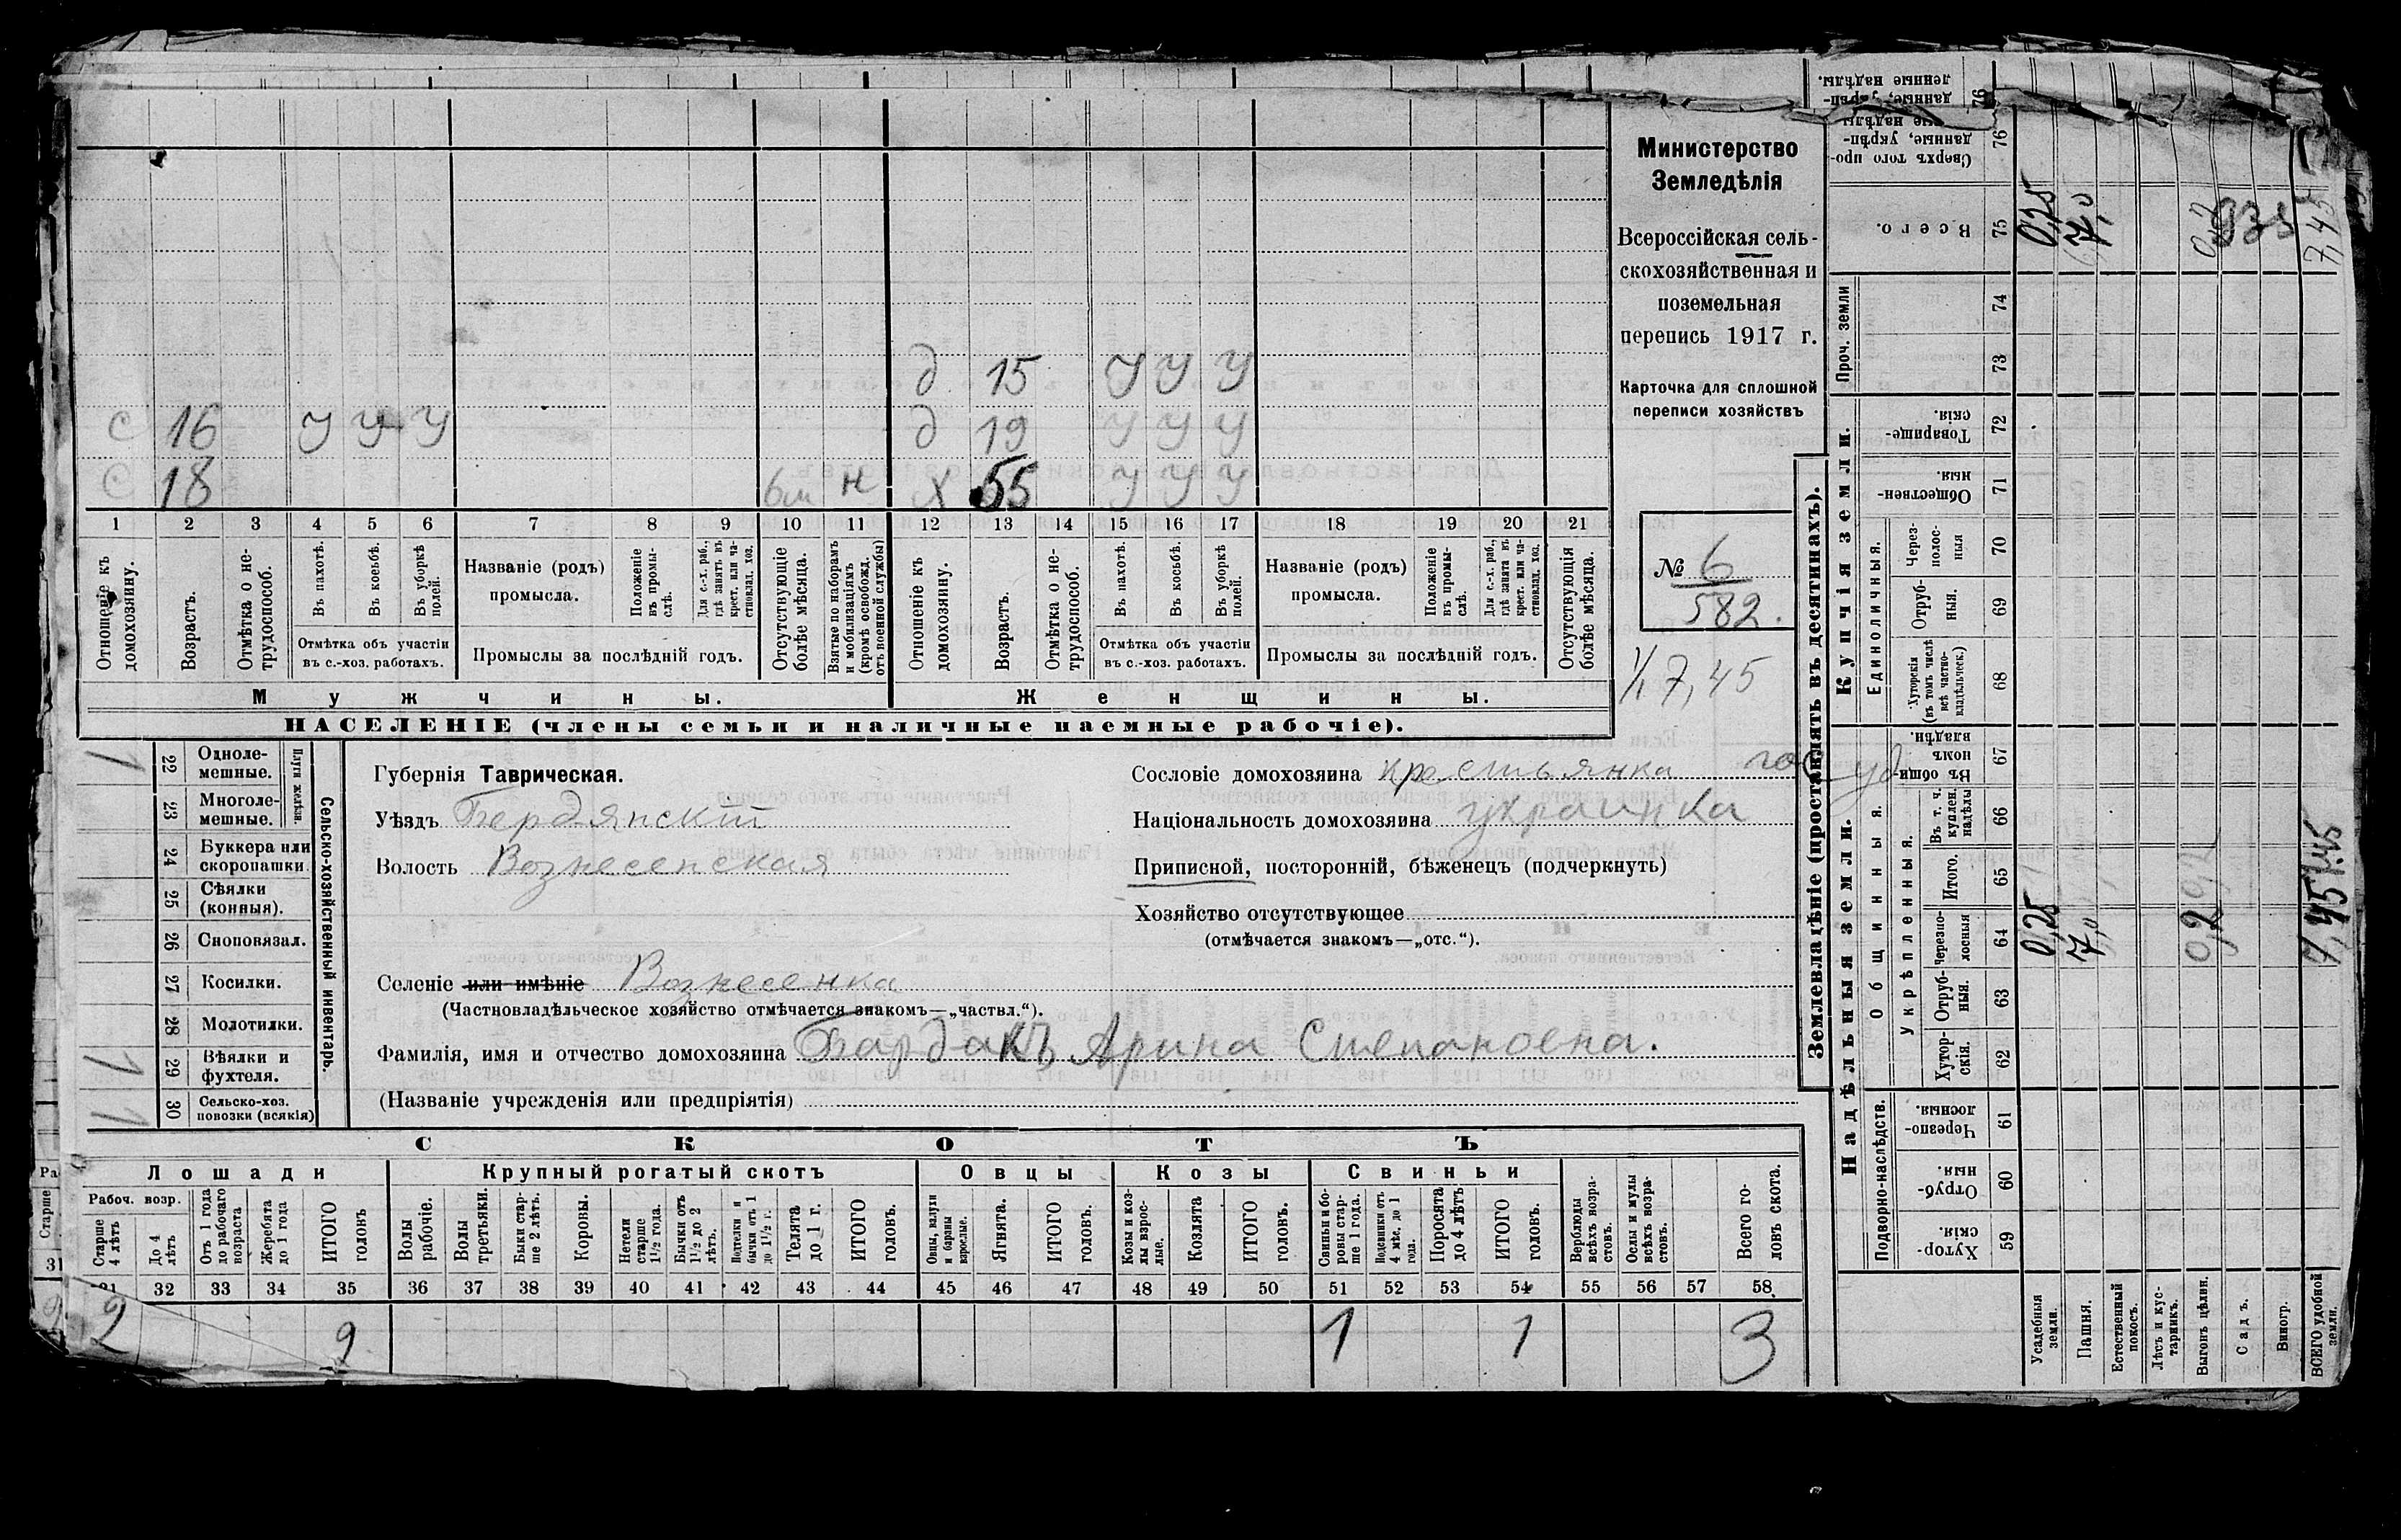 д 15 У У У
С 16 У У У д 19 У У У
С 18 6м н Х 55 У У У
1 2 3 4 5 6 7 8 9 10 11 12 13 14 15 16 17 18 19 20 21
Отношеніе къ домохозяину.
Возрастъ.
Отмѣтка о не-трудоспособ.
Въ пахотѣ.
Въ косьбѣ.
Въ уборкѣ полей.
Отмѣтка объ участіи
въ с.-хоз. работахъ.
Названіе (родъ)
промысла.
Положеніе въ промы-слѣ.
Для с.-х. раб., гдѣ занятъ въ крест. или ча-стновлад. хоз.
Промыслы за послѣдній годъ.
Отсутствующіе болѣе мѣсяца.
Взятые по наборамъ и мобилизаціямъ (кромѣ освобожд. отъ военной службы)
Отношеніе къ домохозяину.
Возрастъ.
Отмѣтка о не-трудоспособ.
Въ пахотѣ.
Въ косьбѣ.
Въ уборкѣ полей.
Отмѣтка объ участіи
въ с.-хоз. работахъ.
Названіе (родъ)
промысла.
Положеніе въ промы-слѣ.
Для с.-х. раб., гдѣ занята въ крест. или ча-стновлад. хоз.
Промыслы за послѣдній годъ.
Отсутствующія болѣе мѣсяца.
Мужчины. Женщины.
НАСЕЛЕНІЕ (члены семьи и наличные наемные рабочіе).
Министерство
Земледѣлія
Всероссійская сель-
скохозяйственная и
поземельная
перепись 1917 г.
Карточка для сплошной
переписи хозяйствъ
№ 6
582.
7,45
Сельско-хозяйственный инвентарь.
Плуги желѣзн.
1 22 Одноле-мешные.
23 Многоле-мешные.
24 Буккера или скоропашки.
25 Сѣялки (конныя).
26 Сноповязал.
27 Косилки.
28 Молотилки.
1 29 Вѣялки и фухтеля.
1 30 Сельско-хоз. повозки (всякія)
Губернія Таврическая.
Уѣздъ Бердянскій
Волость Вознесенская
Селеніе или имѣніе Вознесенка
(Частновладѣльческое хозяйство отмѣчается знакомъ—„частвл.“).
Фамилія, имя и отчество домохозяина Бардакъ Арина Степановна.
(Названіе учрежденія или предпріятія)
Сословіе домохозяина крестьянка
Національность домохозяина украинка
Приписной, посторонній, бѣженецъ (подчеркнуть)
Хозяйство отсутствующее
(отмѣчается знакомъ—„отс.“).
СКОТЪ
Лошади Крупный рогатый скотъ Овцы Козы Свиньи
Рабоч. возр.
Старше 4 лѣтъ
До 4 лѣтъ
Отъ 1 года до рабочаго возраста
Жеребята до 1 года
ИТОГО головъ
Волы рабочіе.
Волы третьяки.
Быки стар-ше 2 лѣтъ.
Коровы.
Нетели старше 1½ года.
Бычки отъ 1½ до 2 лѣтъ.
Подтелки и бычки отъ 1 до 1½ г.
Телята до 1 г.
ИТОГО головъ.
Овцы, валухи и бараны взрослые.
Ягнята.
ИТОГО головъ.
Козы и коз-лы взрос-лые.
Козлята
ИТОГО головъ.
Свиньи и бо-ровы стар-ше 1 года.
Подсвинки отъ 4 мѣс. до 1 года.
Поросята до 4 лѣтъ
ИТОГО головъ.
Верблюды всѣхъ возра-стовъ.
Ослы и мулы всѣхъ возра-стовъ.
Всего го-ловъ скота.
31 32 33 34 35 36 37 38 39 40 41 42 43 44 45 46 47 48 49 50 51 52 53 54 55 56 57 58
2 2 1 1 3
Землевладѣніе (проставлять въ десятинахъ).
Надѣльныя земли. Купчія земли. Проч. земли
Подворно-наслѣдств.
Общинныя.
Укрѣпленныя.
Единоличныя.
Хутор-скія. 59
Отруб-ныя. 60
Черезпо-лосныя. 61
Хутор-скія. 62
Отруб-ныя. 63
Черезпо-лосныя 64
Итого. 65
Въ т. ч. куплен. надѣлы 66
Въ общин-номъ владѣн. 67
Хуторскія (въ томъ числѣ всѣ частно-владѣльческ.) 68
Отруб-ныя. 69
Через-полос-ныя 70
Обществен-ныя. 71
Товарище-скія. 72
73
74
Всего. 75
Сверхъ того про-данные, укрѣп-ленные надѣлы 76
Усадебныя земли. 0,25 0,25
Пашня. 7,0 7,0
Естественный покосъ.
Лѣсъ и кус-тарникъ.
Выгонъ цѣлин. 0,2 0,2
Садъ.
Виногр.
ВСЕГО удобной земли. 7,45 7,45